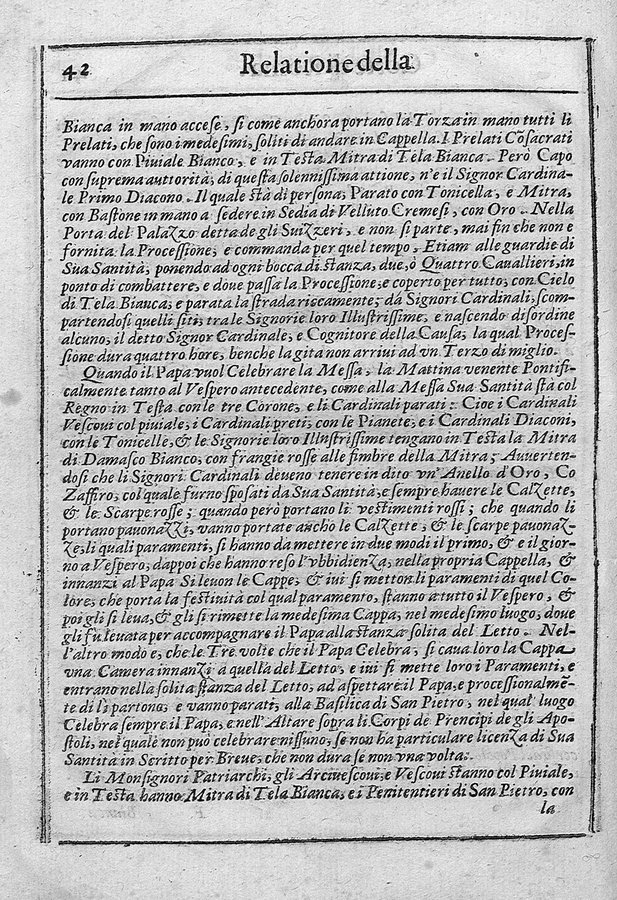 42 Relatione della
Bianca in mano accese, si come anchora portano la Torza in mano tutti li
Prelati, che sono i medesimi, soliti di andare in Cappella. I Prelati Cõsacrati
vanno con Piuiale Bianco, e in Testa Mitra di Tela Bianca. Però Capo
con suprema auttorità, di questa solennissima attione, n'e il Signor Cardina-
le Primo Diacono. Il quale stà di persona, Parato con Tonicella, e Mitra,
con Bastone in mano a sedere in Sedia di Velluto Cremesi, con Oro. Nella
Porta del Palazzo detta de gli Suizzeri, e non si parte, mai fin che non e
fornita la Processione, e commanda per quel tempo, Etiam alle guardie di
Sua Santità, ponendo ad ogni bocca di stanza, due, ò Quattro Cauallieri, in
ponto di combattere, e doue passa la Processione, e coperto per tutto, con Cielo
di Tela Bianca, e parata la strada riccamente, dá Signori Cardinali, scom-
partendosi quelli siti, tra le Signorie loro Illustrissime, e nascendo disordine
alcuno, il detto Signor Cardinale, e Cognitore della Causa, la qual Proces-
sione dura quattro hore, benche la gita non arriui ad vn Terzo di miglio.
Quando il Papa vuol Celebrare la Messa, la Mattina venente Pontifi-
calmente tanto al Vespero antecedente, come alla Messa Sua Santità stà col
Regno in Testa con le tre Corone, e li Cardinali parati: Cioe i Cardinali
Vescoui col piuiale, i Cardinali preti, con le Pianete, e i Cardinali Diaconi,
con le Tonicelle, & le Signorie loro Illustrissime tengano in Testa la Mitra
di Damasco Bianco, con frangie rosse alle fimbre della Mitra; Auuerten-
dosi che li Signori Cardinali deueno tenere in dito vn'Anello d'Oro, Co
Zaffiro, col quale furno sposati da Sua Santità, e sempre hauere le Calzette,
& le Scarpe rosse; quando però portano li vestimenti rossi; che quando li
portano pauonazzi, vanno portate anchò le Calzette, & le scarpe pauonaz-
ze, li quali paramenti, si hanno da mettere in due modi il primo, & e il gior-
no a Vespero, dappoi che hanno reso l'vbbidienza, nella propria Cappella, &
innanzi al Papa Si leuon le Cappe, & iui si metton li paramenti di quel Co-
lore, che porta la festiuità col qual paramento, stanno a tutto il Vespero, &
poi gli si leua, & gli si rimette la medesima Cappa, nel medesimo luogo, doue
gli fu leuata per accompagnare il Papa alla stanza solita del Letto. Nel-
l'altro modo e, che le Tre volte che il Papa Celebra, si caua loro la Cappa
vna Camera innanzi à quella del Letto, e iui si mette loro i Paramenti, e
entrano nella solita stanza del Letto, ad aspettare il Papa, e processionalmẽ-
te di lì partono, e vanno parati, alla Basilica di San Pietro, nel qual luogo
Celebra sempre il Papa, e nell'Altare sopra li Corpi de Prencipi de gli Apo-
stoli, nel quale non può celebrare nissuno, se non ha particulare licenza di Sua
Santità in Scritto per Breue, che non dura se non vna volta.
Li Monsignori Patriarchi, gli Arciuescoui, e Vescoui stanno col Piuiale,
e in Testa hanno Mitra di Tela Bianca, e i Penitentieri di San Pietro, con
la